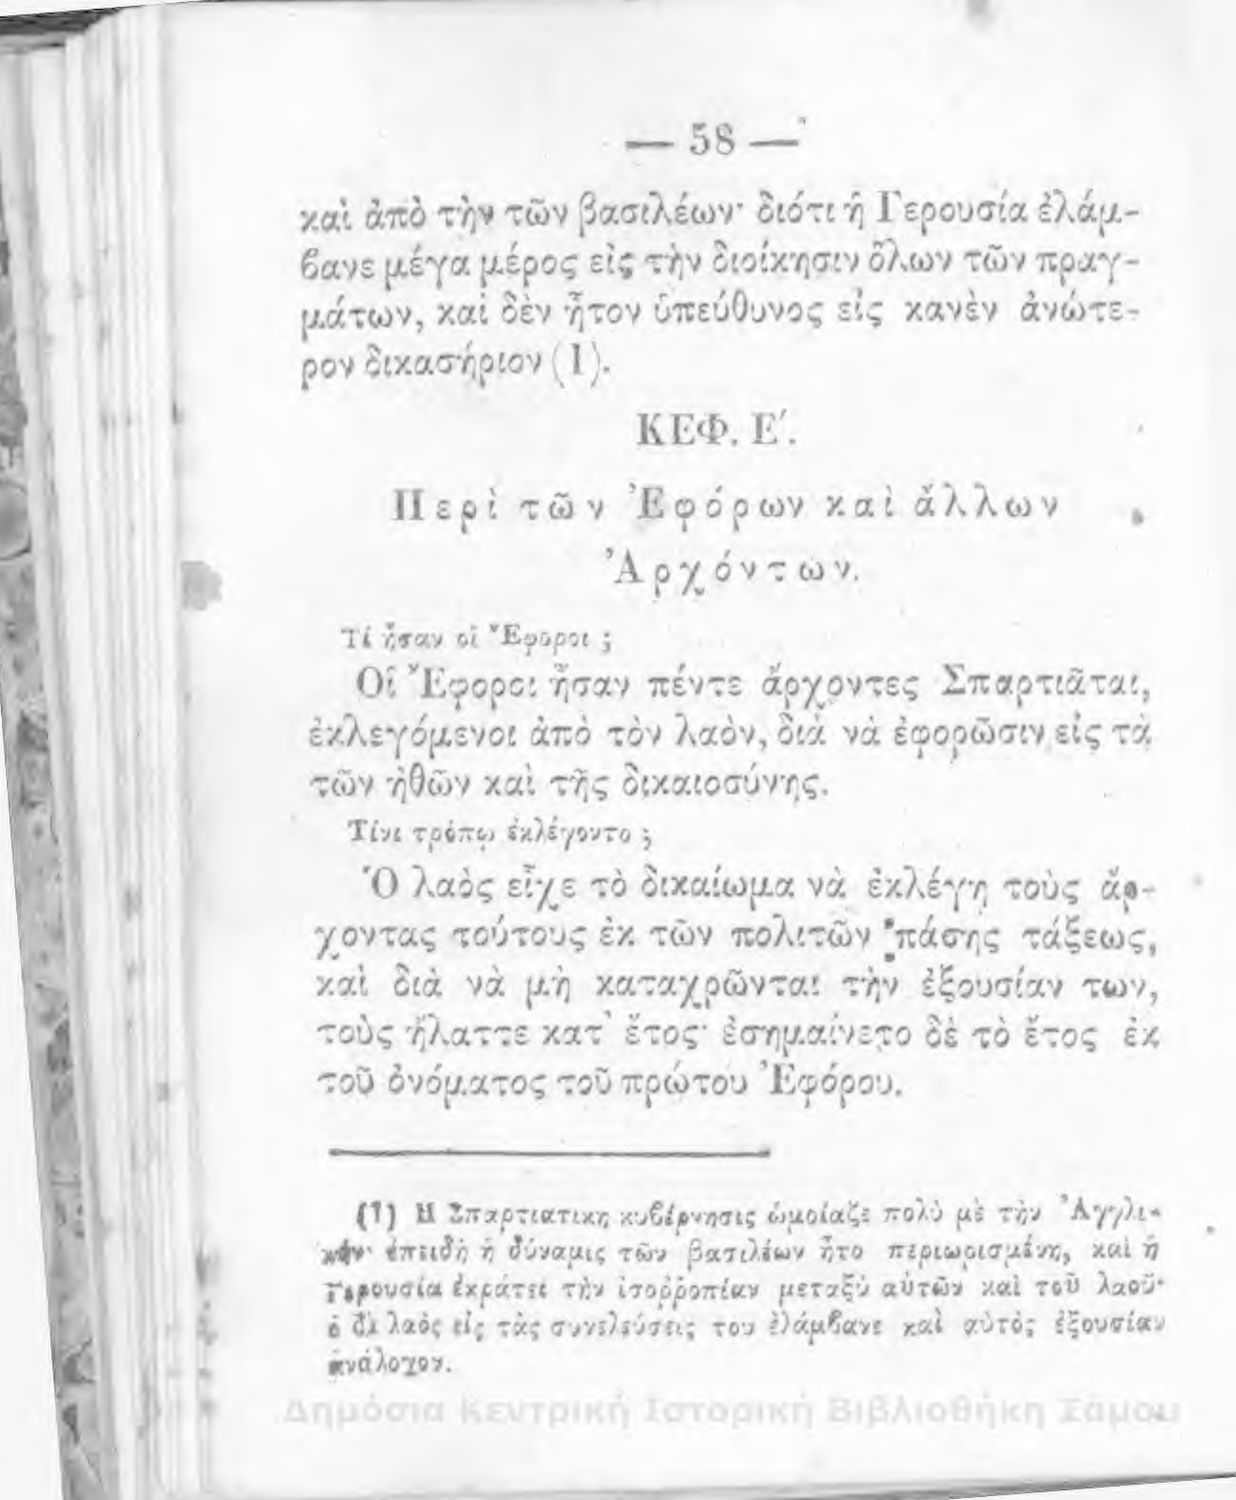 — 58 —
καὶ ἀπὸ τὴν τῶν βασιλέων· διότι ἡ Γερουσία ἐλάμ-
βανε μέγα μέρος εἰς τὴν διοίκησιν ὅλων τῶν πραγ-
μάτων, καὶ δὲν ἦτον ὑπεύθυνος εἰς κανὲν ἀνώτε-
ρον δικαϛήριον (1).
ΚΕΦ. Ε΄.
Περὶ τῶν Ἐφόρων καὶ ἄλλων
Ἀρχόντων.
Τί ἦσαν οἱ Ἔφοροι ;
Οἱ Ἔφοροι ἦσαν πέντε ἄρχοντες Σπαρτιᾶται,
ἐκλεγόμενοι ἀπὸ τὸν λαὸν, διὰ νὰ ἐφορῶσιν εἰς τὰ
τῶν ἠθῶν καὶ τῆς δικαιοσύνης.
Τίνι τρόπῳ ἐκλέγοντο ;
Ὁ λαὸς εἶχε τὸ δικαίωμα νὰ ἐκλέγῃ τοὺς ἄρ-
χοντας τούτους ἐκ τῶν πολιτῶν πάσης τάξεως,
καὶ διὰ νὰ μὴ καταχρῶνται τὴν ἐξουσίαν των,
τοὺς ἤλαττε κατ᾽ ἔτος· ἐσημαίνετο δὲ τὸ ἔτος ἐκ
τοῦ ὀνόματος τοῦ πρώτου Ἐφόρου.
(1) Η Σπαρτιατικη κυβέρνησις ὡμοίαζε πολὺ μὲ τὴν Ἀγγλι-
κήν· ἐπειδὴ ἡ δύναμις τῶν βασιλέων ἦτο περιωρισμένη, καὶ ἡ
Γερουσία ἐκράτει τὴν ἰσοῤῥοπίαν μεταξὺ αὐτῶν καὶ τοῦ λαοῦ·
ὁ δὲ λαὸς εἰς τὰς συνελεύσεις του ἐλάμβανε καὶ αὐτὸς ἐξουσίαν
ἀνάλογον.
Δημόσια Κεντρική Ιστορική Βιβλιοθήκη Σάμου